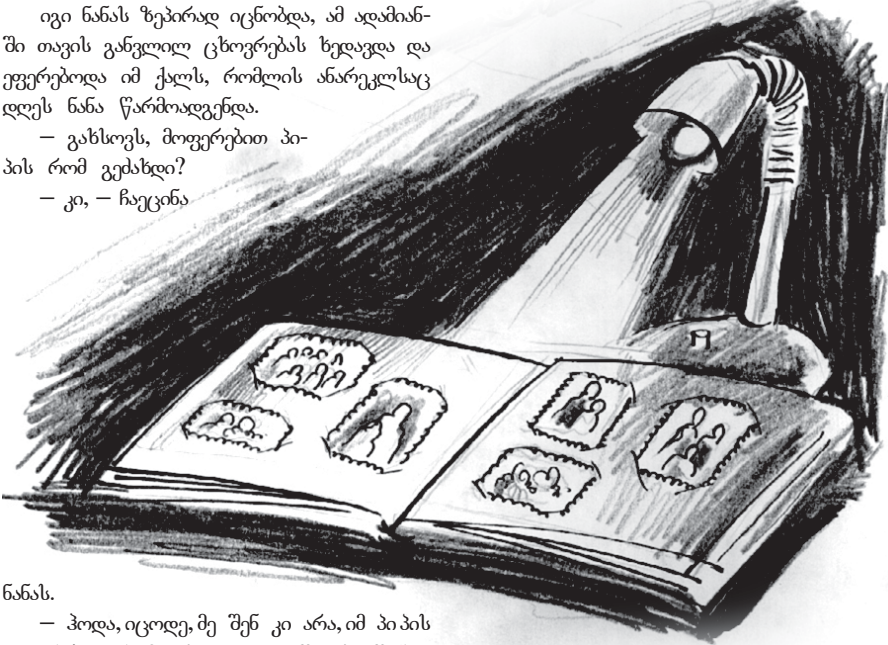 იგი ნანას ზეპირად იცნობდა, ამ ადამიან-
ში თავის განვლილ ცხოვრებას ხედავდა და
ეფერებოდა იმ ქალს, რომლის ანარეკლსაც
დღეს ნანა წარმოადგენდა.
– გახსოვს, მოფერებით პი-
პის რომ გეძახდი?
– კი, – ჩაეცინა
ნანას.
– ჰოდა, იცოდე, მე შენ კი არა, იმ პიპის